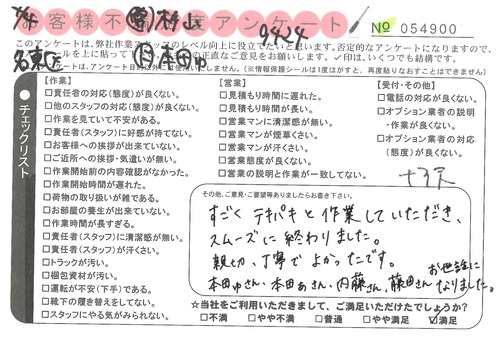 お客様不満度アンケート
村山
0424
№ 054900
このアンケートは、弊社作業スタッフのレベル向上に役立てたいと思います。否定的なアンケートになりますので、
本田ゆ
名東区
(アンケート目的以外には使用いたしません。)(※情報保護シールは1度はがすと、再度貼りなおすことはできません)
チェックリスト
【作業】
□責任者の対応(態度)が良くない。
□他のスタッフの対応(態度)が良くない。
□作業を見ていて不安がある。
□責任者(スタッフ)に好感が持てない。
□お客様への挨拶が出来ていない。
□ご近所への挨拶・気遣いが無い。
□作業開始前の内容確認がなかった。
□作業開始時間が遅れた。
□荷物の取り扱いが雑である。
□お部屋の養生が出来ていない。
□作業時間が長すぎる。
□責任者(スタッフ)に清潔感が無い。
□責任者(スタッフ)が汗くさい。
□トラックが汚い。
□梱包資材が汚い。
□運転が不安(下手)である。
□靴下の履き替えをしてない。
□スタッフにやる気がみられない。
【営業】
□見積もり時間に遅れた。
□見積もり時間が長い。
□営業マンに清潔感が無い。
□営業マンが煙草くさい。
□営業マンが汗くさい。
□営業態度が良くない。
□営業の説明と作業が一致してない。
【受付・その他】
□電話の対応が良くない。
□オプション業者の説明
・作業が良くない。
□オプション業者の対応
(態度)が良くない。
その他、ご意見・ご要望等ありましたらお書き下さい。
すごくテキパキと作業していただき、
スムーズに終わりました。
親切、丁寧でよかったです。
本田ゆさん、本田あさん、内藤さん、藤田さんお世話になりました。
☆当社をご利用いただきまして、ご満足いただけたでしょうか?
□不満 □やや不満 □普通 □やや満足 ☑満足